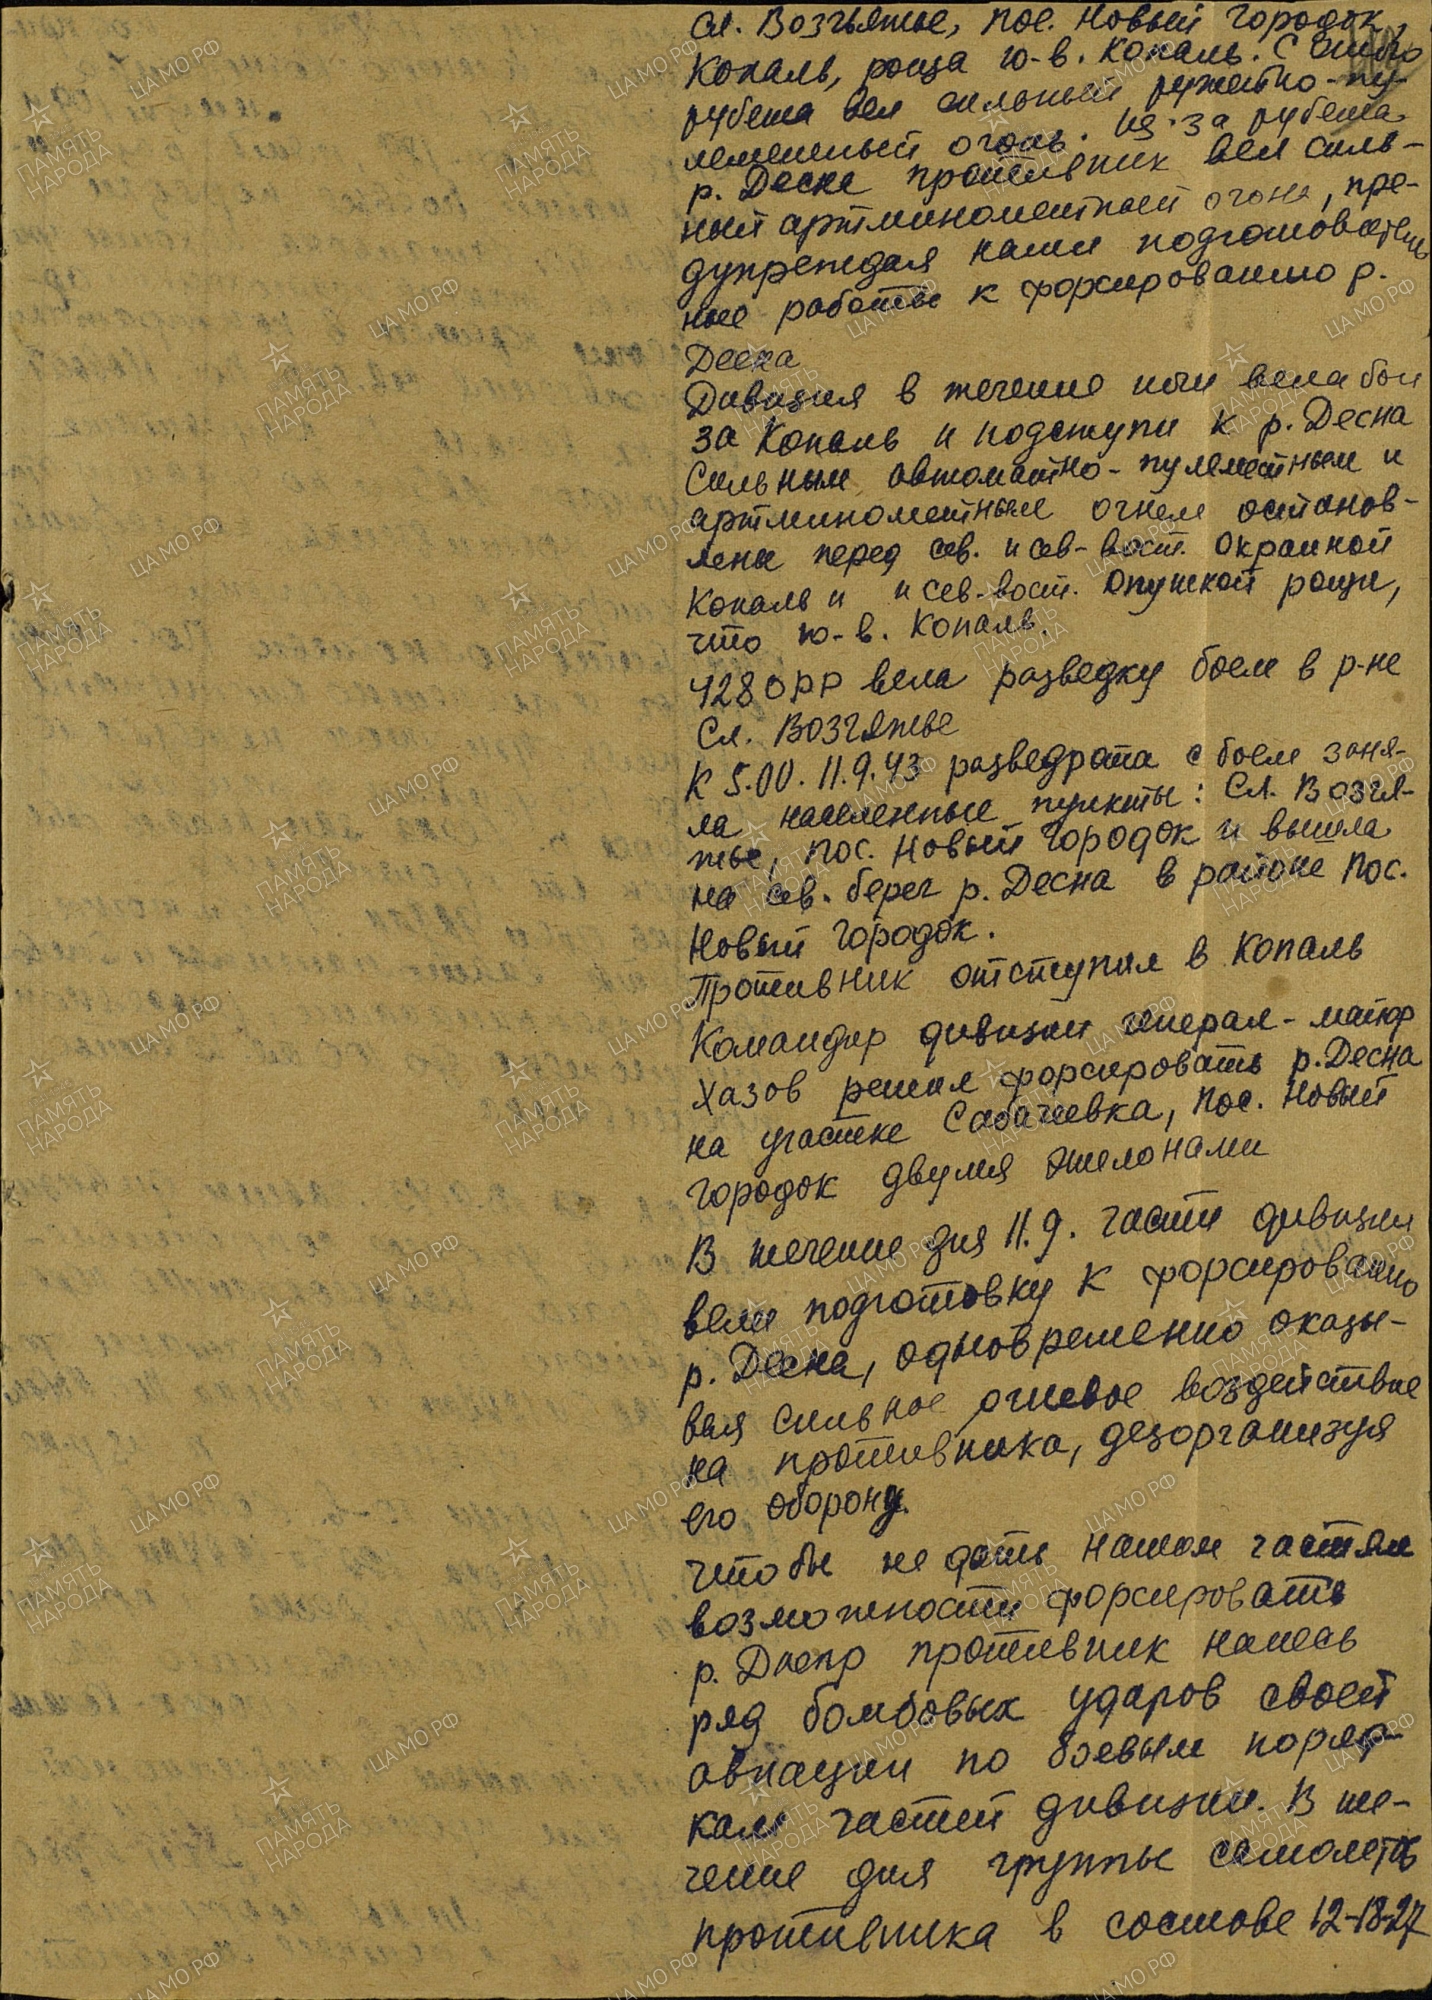 Сл. Возгьятье, пос. Новый Городок,
Копаль, роща ю-в. Копаль. С этого
рубежа вел сильный ружейно-пу-
леметный огонь. Из-за рубежа
р. Десна противник вел силь-
ный артминометный огонь, пре-
дупреждая наши подготовитель
ные работы к форсированию р.
Десна
Дивизия в течение ночи вела бои
за Копаль и подступы к р. Десна
Сильным автоматно-пулеметным и
артминометным огнем останов-
лены перед сев. и сев-вост. окраиной
Копаль и и сев-вост. опушкой рощи,
что ю-в. Копаль.
428 ОРР вела разведку боем в р-не
Сл. Возгятье
К 5.00. 11.9.43 разведрота с боем заня-
ла населенные пункты: Сл. Возгя-
тье, пос. Новый Городок и вышла
на сев. берег р. Десна в районе пос.
Новый Городок.
Противник отступил в Копаль
Командир дивизии генерал-майор
Хазов решил форсировать р. Десна
на участке Сабачевка, пос. Новый
Городок двумя эшелонами
В течение дня 11.9. части дивизии
вели подготовку к форсированию
р. Десна, одновременно оказы-
вая сильное огневое воздействие
на противника, дезорганизуя
его оборону.
Чтобы не дать нашим частям
возможности форсировать
р. Днепр противник нанес
ряд бомбовых ударов своей
авиации по боевым поряд-
кам частей дивизии. В те-
чение дня группы самолетов
противника в составе 12-18-27
ПАМЯТЬ НАРОДА
ЦАМО РФ